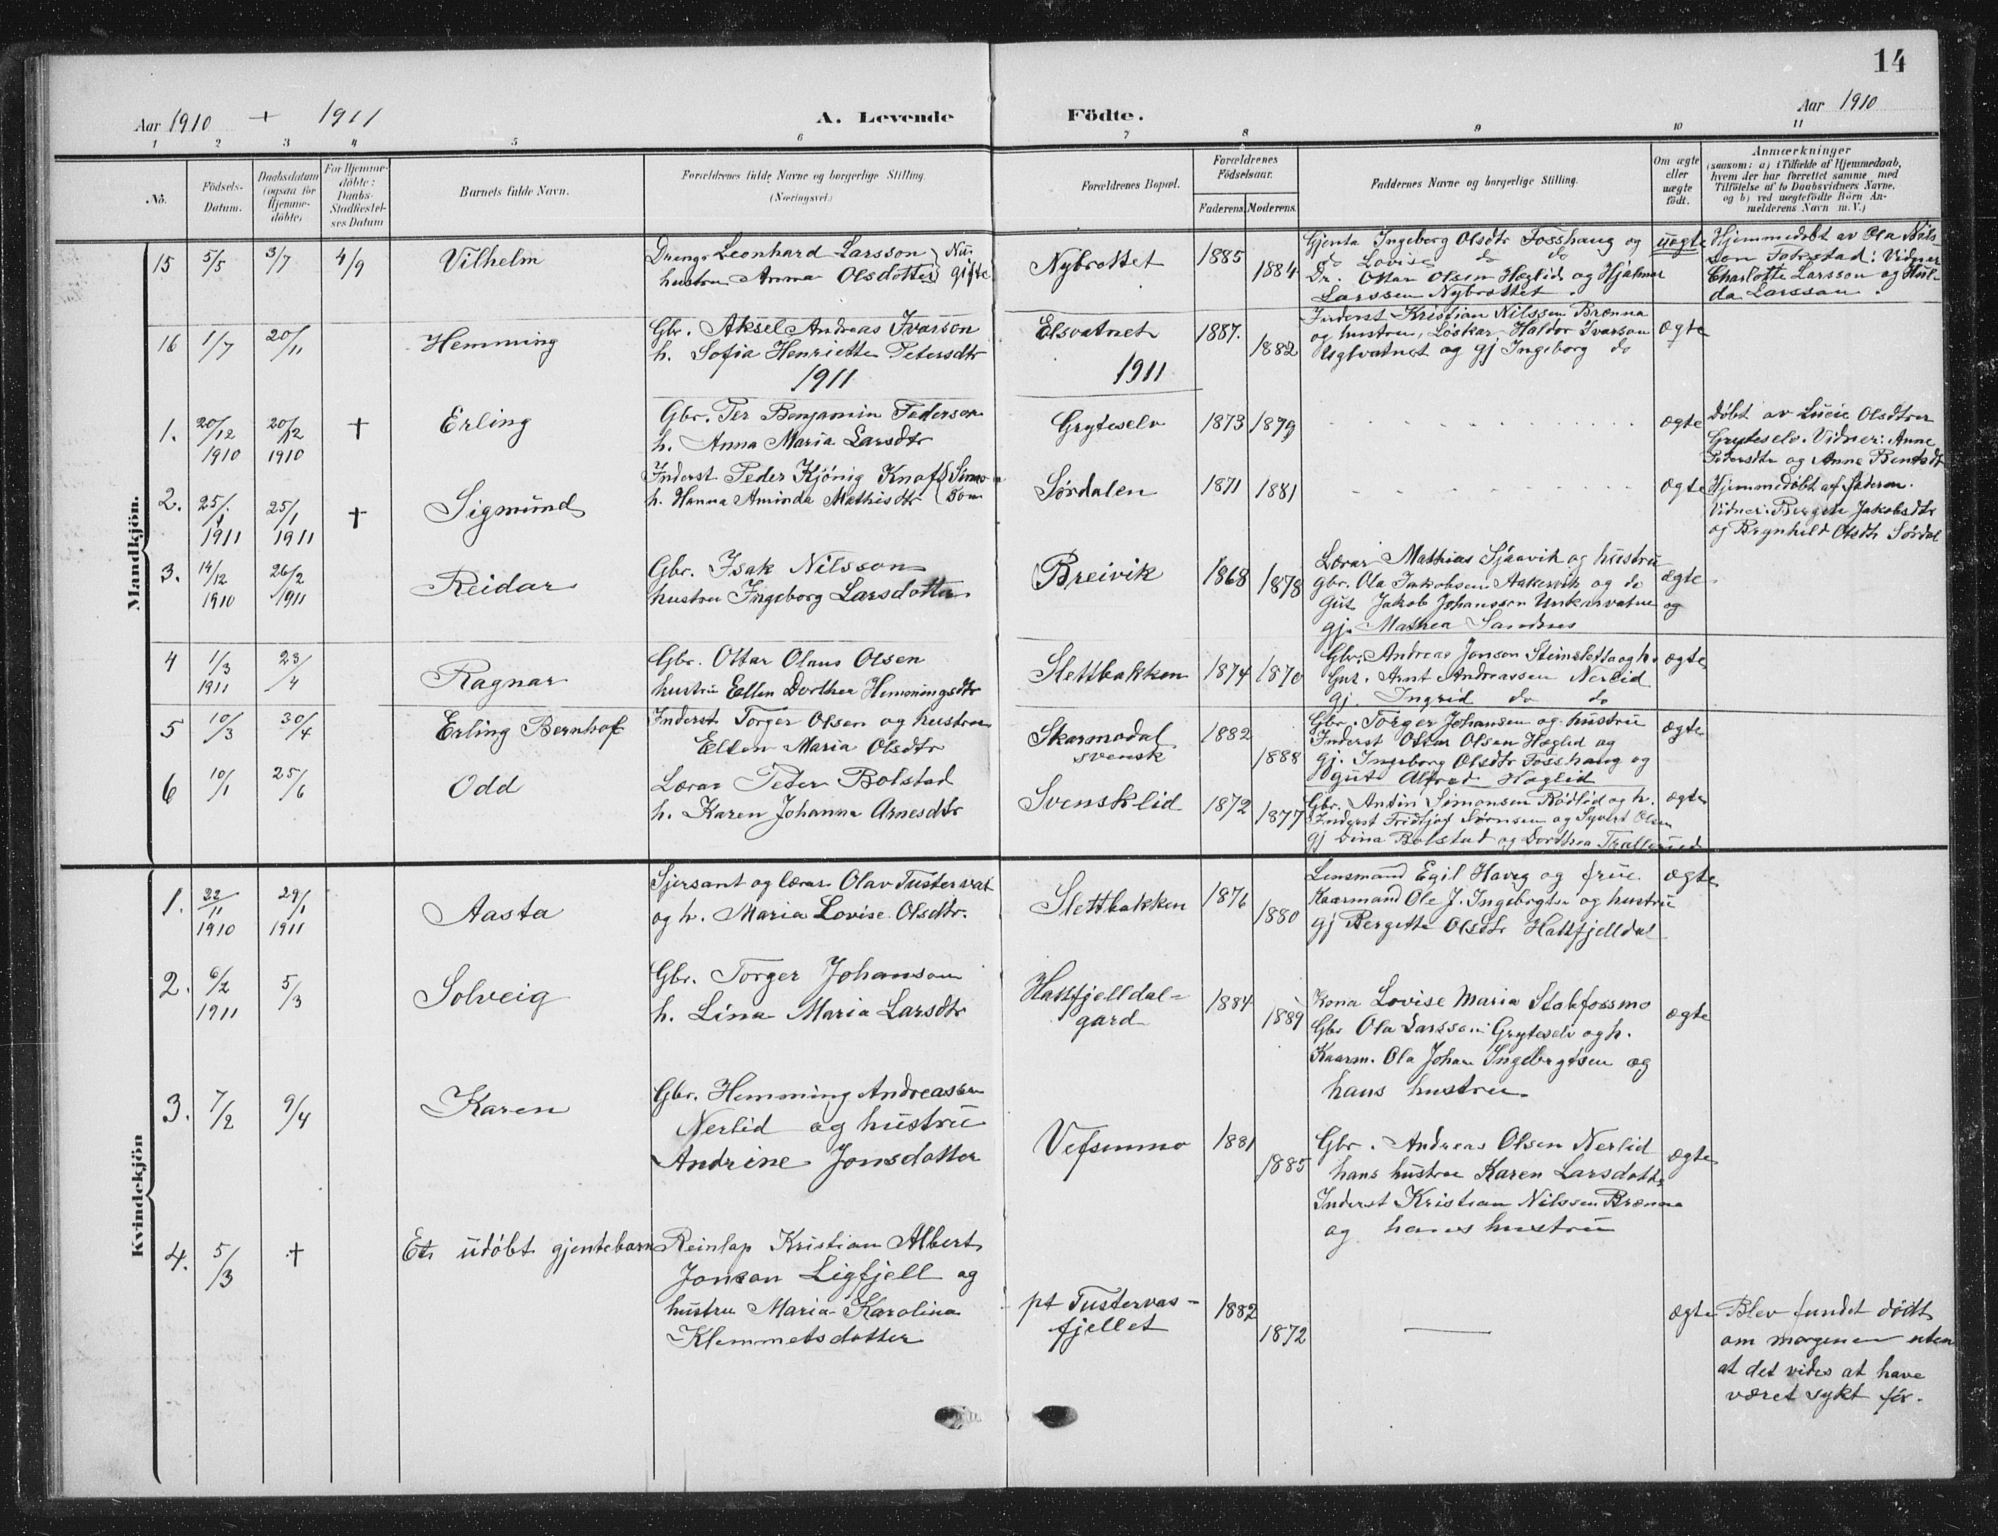 14
Aar 1910 + 1911 A. Levende Födte. Aar 1910
1 2 3 4 5 6 7 8 9 10 11
No.
Födsels-Datum.
Daabsdatum (ogsaa for Hjemmedöbte)
For Hjemmedöbte: Daabs-Stadfestelses Datum
Barnets fulde Navn.
Forældrenes fulde Navne og borgerlige Stilling.
(Næringsvei.)
Forældrenes Bopæl.
Forældrenes Födselsaar.
Faderens Moderens.
Faddernes Navne og borgerlige Stilling.
Om ægte eller uægte födt.
Anmærkninger
(saasom: a) i Tilfælde af Hjemmedaab, hvem der har forrettet samme, med Tilföielse af to Daabsvidners Navne, og b) ved uægtefödte Börn Anmelderens Navn m. V.)
Mandkjön.
15 5/5 3/7 4/9 Vilhelm
Dreng Leonhard Larsson (Nu
hustru Anna Olsdotter) gifte
Nybrottet 1885 1884
Gjenta Ingeborg Olsdtr Fosshaug og
do Lovise do do
Dr. Ottar Olsen Hæglid og Hjalmar
Larssen Nybrottet.
uægte
Hjemmedøbt av Ola Nils-
son Vidner
Charlotte Larsson og Hul-
da Larsson.
16 1/7 20/11 Hemming
Gbr. Aksel Andreas Ivarson
h. Sofia Henriette Petersdtr
Elsvatnet 1887. 1882
Inderst Kristian Nilssen Brænna
og hustru, Løskar Haldor Ivarson
og gj Ingeborg do
ægte
1911 1911
1. 20/12 1910 20/12 1910 + Erling
Gbr. Per Benjamin Pederson
h. Anna Maria Larsdtr
Gryteselv 1873 1879
ægte
Døbt av Lucie Olsdtter
Gryteselv. Vidner: Anne
Pedersdtr og Anne Bentsdtr
2. 25/1 1911 25/1 1911 + Sigmund
Inderst Peder Kjönig Knofs (Simon
h. Hanna Aminda Mathisdtr son
Sørdalen 1871 1881
ægte
Hjemmedøbt af faderen.
Vidner: Bergite Jakobsdtr
og Brynhild Olsdtr Sørdal
3. 14/12 1910 26/2 1911 Reidar
Gbr. Isak Nilsson
hustru Ingeborg Larsdotter
Breivik 1868 1878
Lærar Mathias Sjaavik og hustru
gbr. Ola Jakobsen Aakervik og do
Gut Jakob Johansson Unkervatne og
gj. Mathea Sandnes
ægte
4 1/3 1911 23/4 Ragnar
Gbr. Ottar Olaus Olsen
hustru Ellen Dorthea Hemmingsdtr
Slettbakken 1874 1870
Gbr. Andreas Jonson Steinsletta og h.
Gut. Arnt Andreassen Nerlid
gj. Ingrid do do
ægte
5 10/3 30/4 Erling Bernhof
Inderst Torger Olsen og hustru
Ellen Maria Olsdtr
Skarmodal
svensk
1882 1888
Gbr. Torger Johansen og hustru
Inderst Ottar Olsen Hæglid og
gj. Ingeborg Olsdtr Fosshaug og
gut Alfred Hæglid
ægte
6 10/1 25/6 Odd
Lærar Peter Bolstad
h. Karen Johanna Arnesdtr
Svensklid 1872 1877
Gbr. Andin Simonsen Rødlid og h.
Inderst Fridtjof Sørensen og Syvert Olsen
gj Dina Bolstad og Dorthea
ægte
Kvindekjön
1. 22/11 1910 29/1 1911 Aasta
Sjersant og lærar Olav Tustervat
og h. Maria Lovise Olsdtr.
Slettbakken 1876 1880
Lensmand Egil Haveg og frue
Kaarmand Ole J. Ingebrgtsn og hustru
gj Bergette Olsdtr Hattfjelldal
ægte
2. 6/2 1911 5/3 Solveig
Gbr. Torger Johanson
h. Lina Maria Larsdtr
Hattfjelldal-
gard
1884 1889
Kona Lovise Maria Stabfossmo
Gbr Ola Larsson Gryteselv og h.
Kaarm. Ola Johan Ingebrgtsen og
hans hustru.
ægte
3. 7/2 9/4 Karen
Gbr. Hemming Andreassen
Nerlid og hustru
Andrine Jonsdotter
Vefsenmo 1881 1885
Gbr. Andreas Olsen Nerlid
hans hustru Karen Larsdottr
Inderst Kristian Nilssen Brænna
og hans hustru
ægte
4. 5/3 + Et udøbt gjentebarn
Reinlap Kristian Albert
Jonson Ligfjell og
hustru Maria Karolina
Klemmetsdotter
pt Tustervas-
fjellet
1882 1872
ægte
Blev fundet dødt
om morgenen uten
at det vides at have
været sykt før.